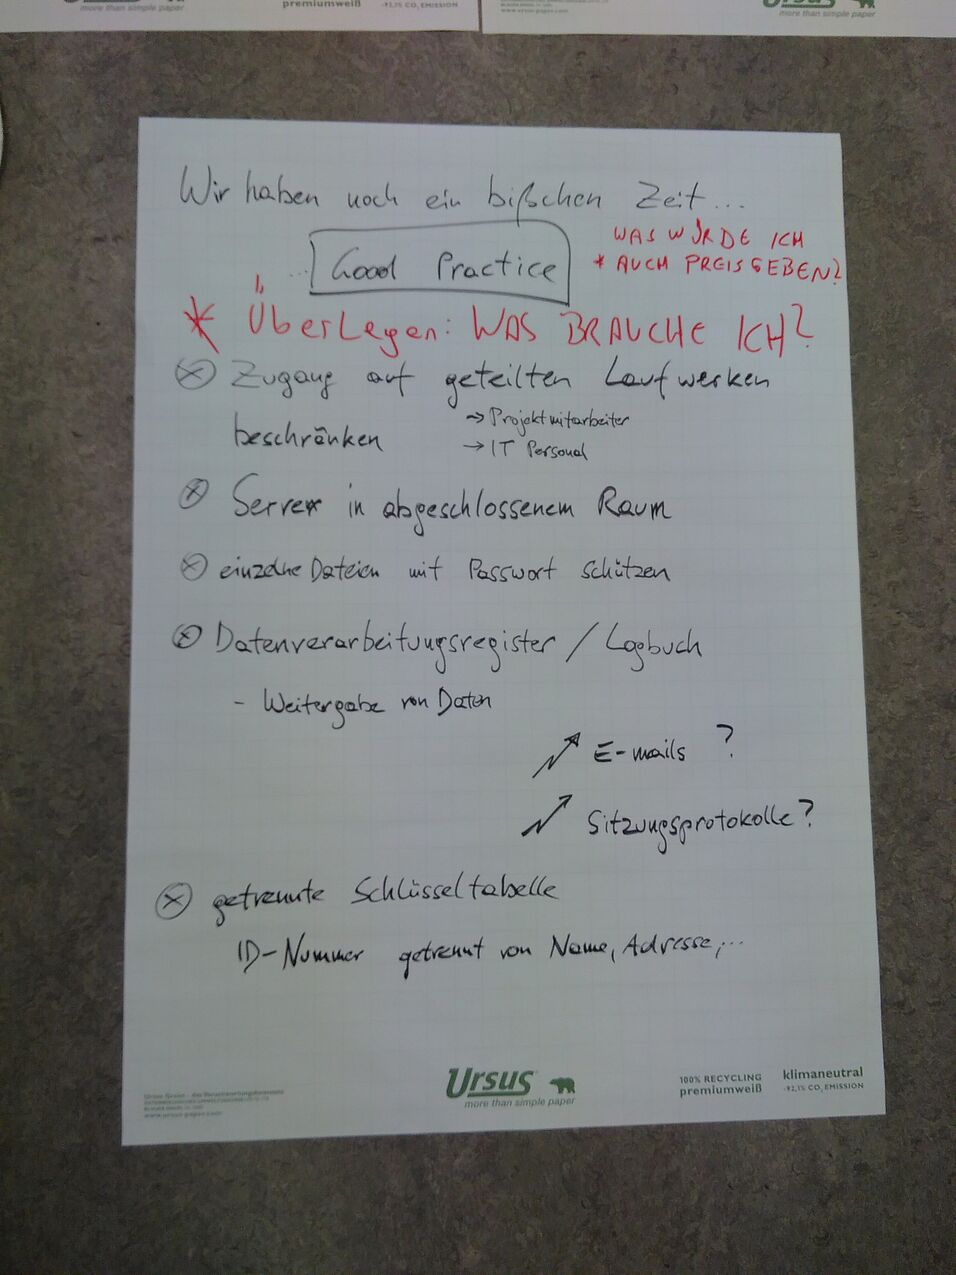 more than simple paper
premiumweiß
-92,1% CO₂ EMISSION
Ursus
more than simple paper
Wir haben noch ein bißchen Zeit...
... Good Practice
WAS WÜRDE ICH
* AUCH PREISGEBEN?
* Überlegen: WAS BRAUCHE ICH?
Zugang auf geteilten Laufwerken
beschränken
→ Projektmitarbeiter
→ IT Personal
Server in abgeschlossenem Raum
einzelne Dateien mit Passwort schützen
Datenverarbeitungsregister / Logbuch
- Weitergabe von Daten
E-mails ?
Sitzungsprotokolle?
getrennte Schlüsseltabelle
ID-Nummer getrennt von Name, Adresse,...
Ursus
more than simple paper
100% RECYCLING
premiumweiß
klimaneutral
-92,1% CO₂ EMISSION